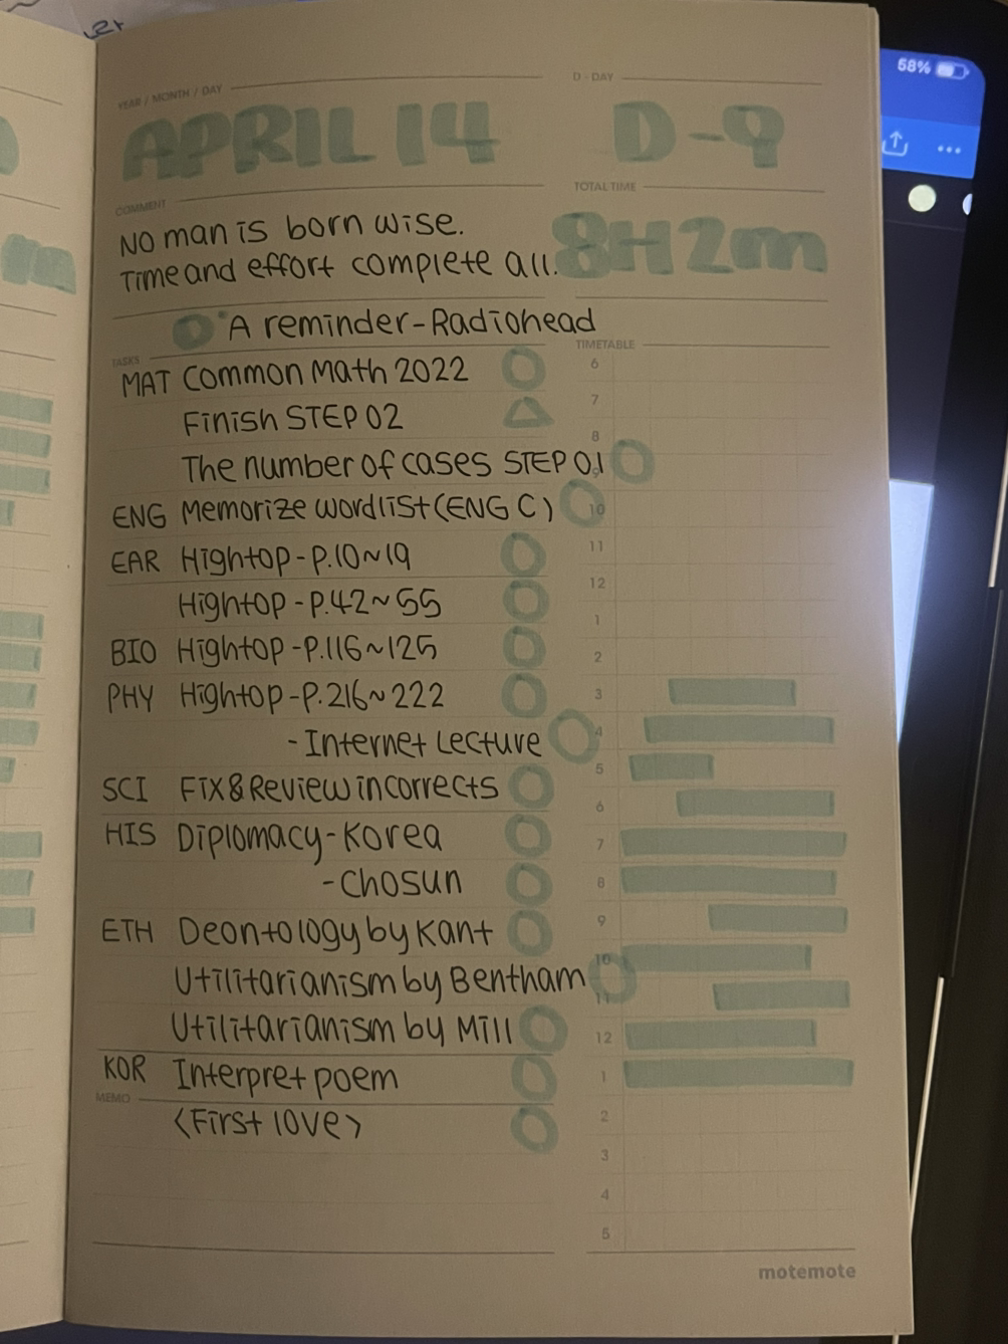 YEAR / MONTH / DAY
D - DAY
58%
APRIL 14
D-9
COMMENT
TOTAL TIME
No man is born wise.
Time and effort complete all.
8H 2m
A reminder-Radiohead
TASKS
TIMETABLE
MAT Common Math 2022
Finish STEP 02
The number of cases STEP 01
ENG Memorize wordlist (ENG C)
EAR Hightop-P.10~19
Hightop-P.42~55
BIO Hightop-P.116~125
PHY Hightop-P.216~222
- Internet Lecture
SCI Fix&Review incorrects
HIS Diplomacy-Korea
-Chosun
ETH Deontology by Kant
Utilitarianism by Bentham
Utilitarianism by Mill
KOR Interpret poem
MEMO
<First love>
6
7
8
9
10
11
12
1
2
3
4
5
6
7
8
9
10
11
12
1
2
3
4
5
motemote